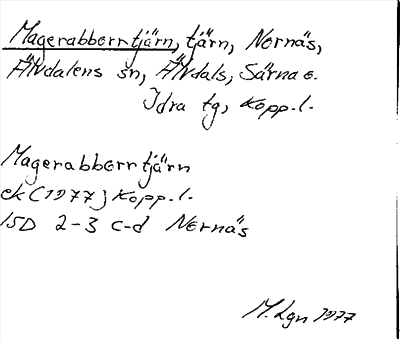 Magerabborrtjärn, tjärn, Nornäs,
Älvdalens sn, Älvdals, Särna o.
Idra tg, Kopp. l.
Magerabborrtjärn
ek (1977) Kopp. l.
15D 2-3 c-d Nornäs
M. Lgn 1977